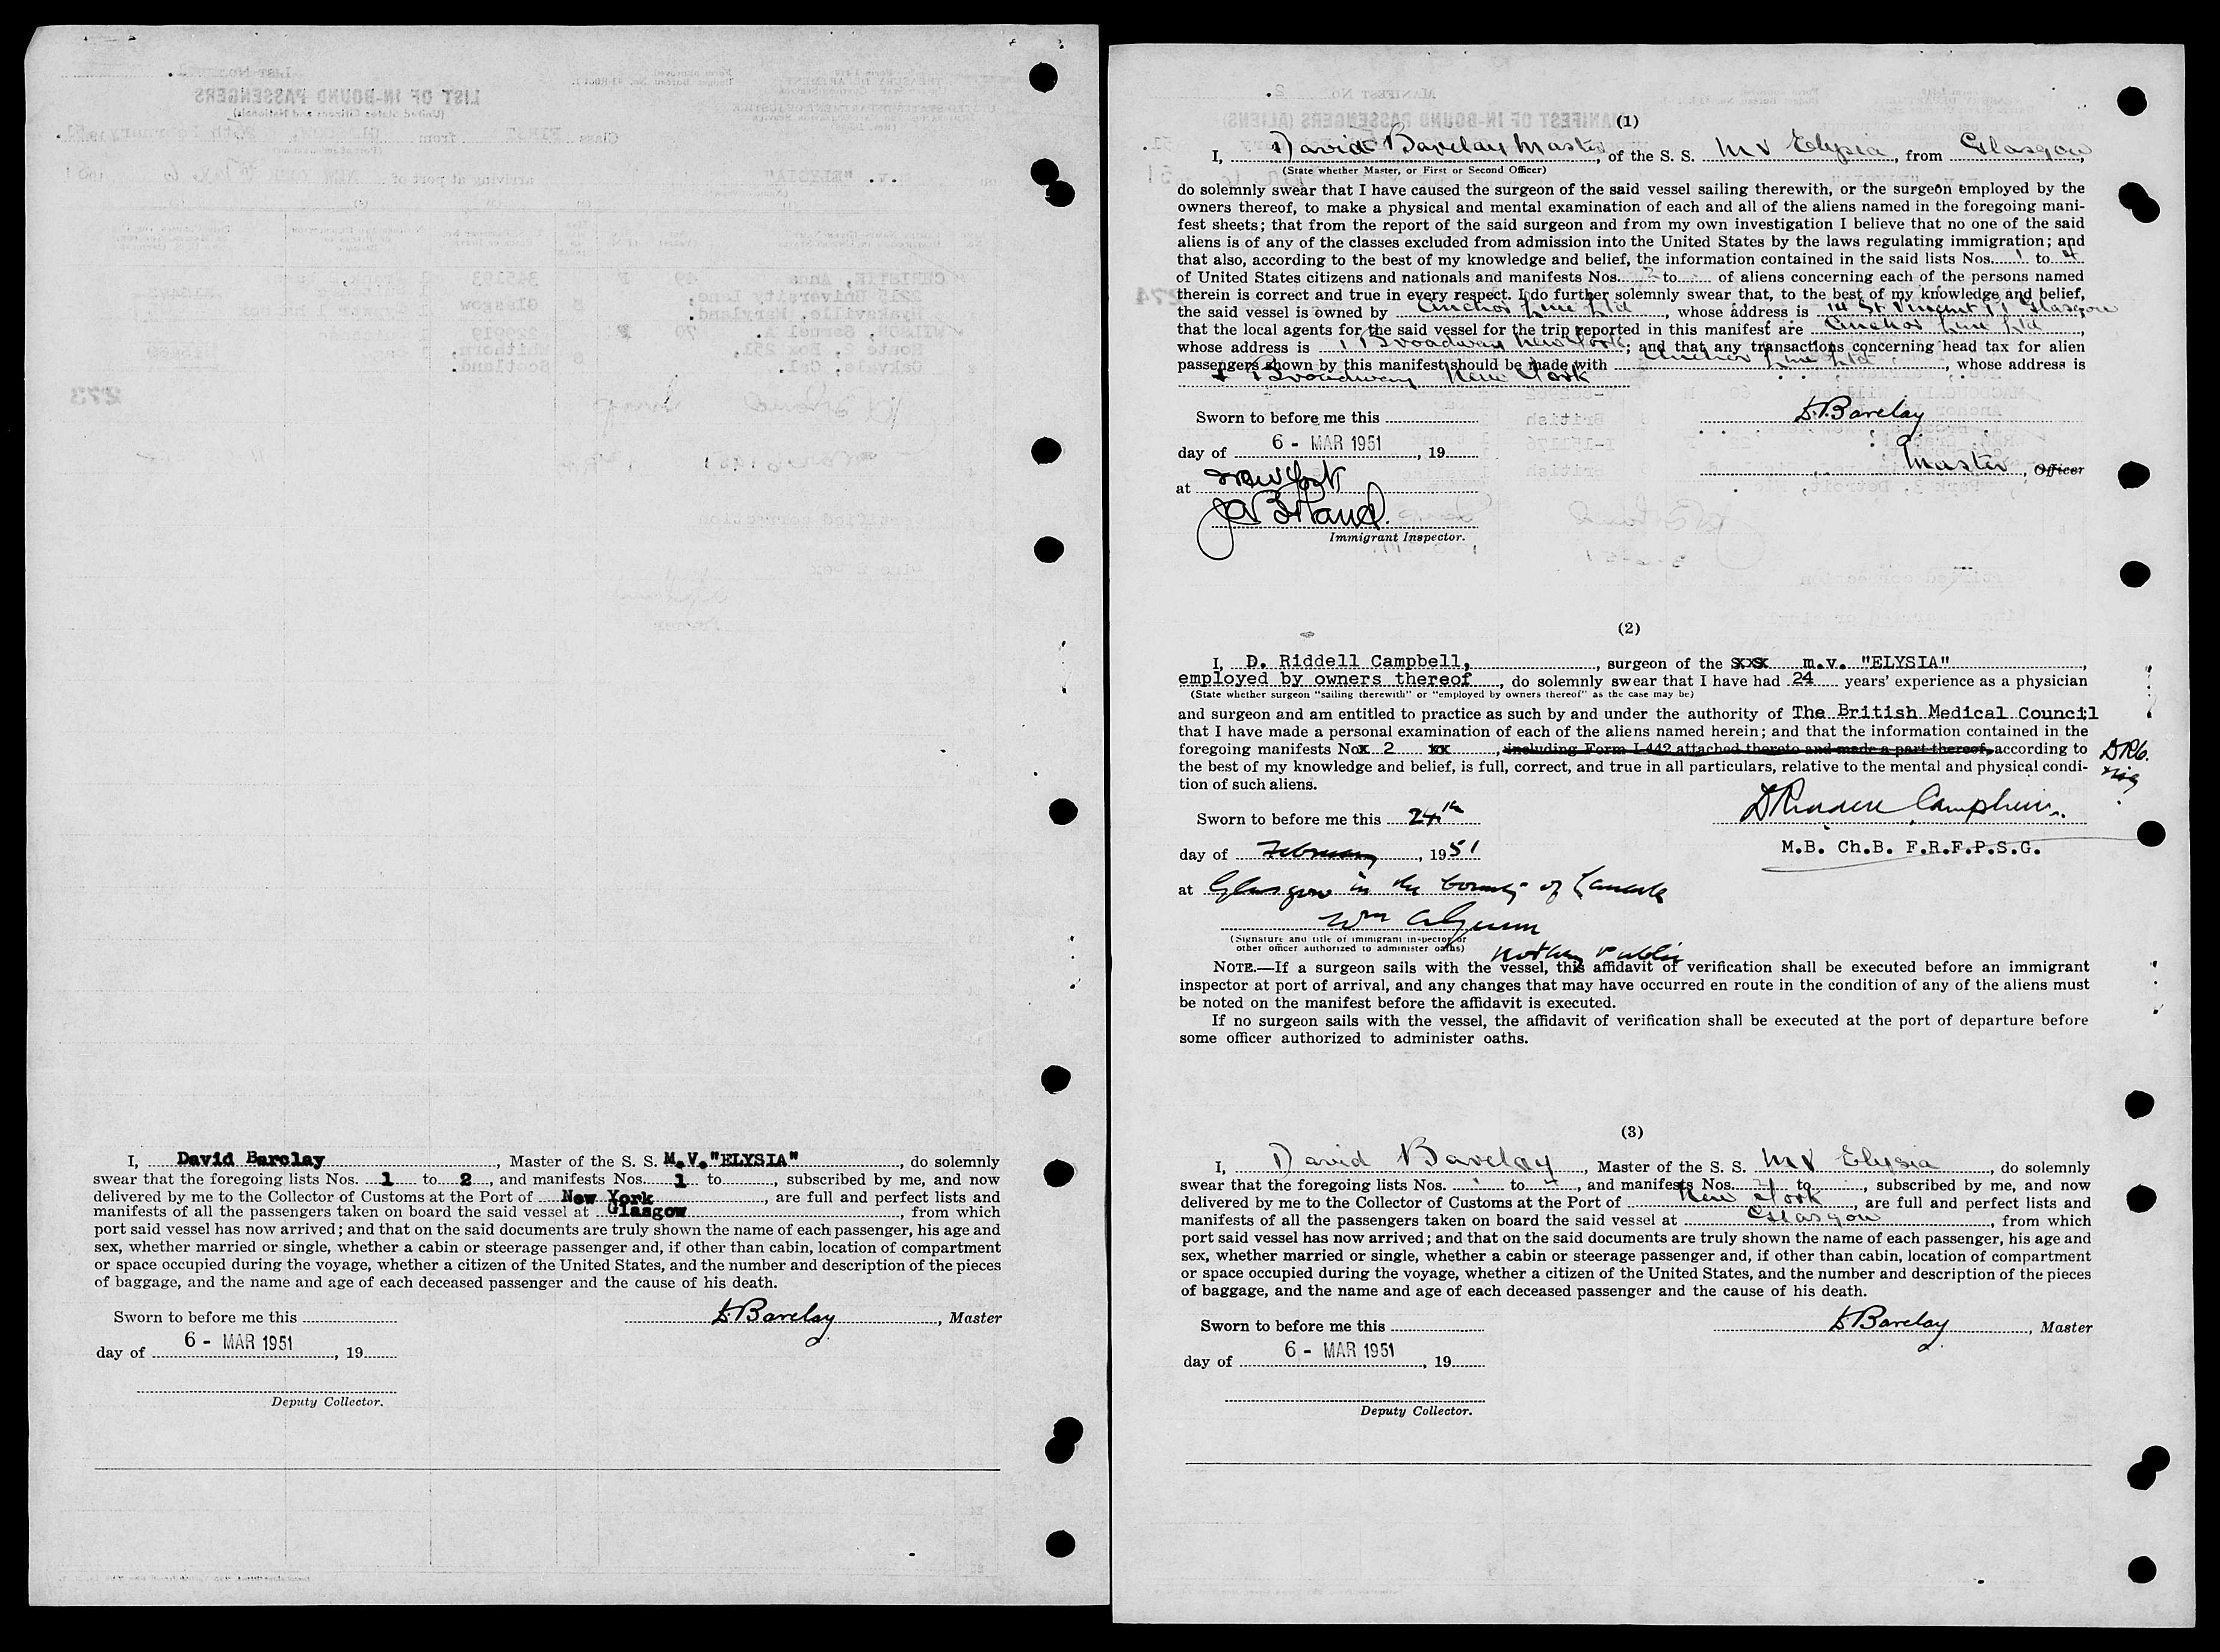 I, David Barclay, Master of the S. S. M.V. "ELYSIA", do solemnly
swear that the foregoing lists Nos. 1 to 2, and manifests Nos. 1 to, subscribed by me, and now
delivered by me to the Collector of Customs at the Port of New York, are full and perfect lists and
manifests of all the passengers taken on board the said vessel at Glasgow, from which
port said vessel has now arrived; and that on the said documents are truly shown the name of each passenger, his age and
sex, whether married or single, whether a cabin or steerage passenger and, if other than cabin, location of compartment
or space occupied during the voyage, whether a citizen of the United States, and the number and description of the pieces
of baggage, and the name and age of each deceased passenger and the cause of his death.
Sworn to before me this
D. Barclay, Master
day of 6 - MAR 1951, 19
Deputy Collector.
(1)
I, David Barclay Master, of the S. S. MV Elysia, from Glasgow,
(State whether Master, or First or Second Officer)
do solemnly swear that I have caused the surgeon of the said vessel sailing therewith, or the surgeon employed by the
owners thereof, to make a physical and mental examination of each and all of the aliens named in the foregoing mani-
fest sheets; that from the report of the said surgeon and from my own investigation I believe that no one of the said
aliens is of any of the classes excluded from admission into the United States by the laws regulating immigration; and
that also, according to the best of my knowledge and belief, the information contained in the said lists Nos. 1 to 4
of United States citizens and nationals and manifests Nos. 2 to of aliens concerning each of the persons named
therein is correct and true in every respect. I do further solemnly swear that, to the best of my knowledge and belief,
the said vessel is owned by Anchor Line Ltd, whose address is 14 St. Vincent Glasgow
that the local agents for the said vessel for the trip reported in this manifest are Anchor Line Ltd,
whose address is Broadway New York; and that any transactions concerning head tax for alien
passengers shown by this manifest should be made with Anchor Line Ltd, whose address is
Broadway New York
Sworn to before me this
D. Barclay
day of 6 - MAR 1951, 19
Master, Officer
at New York
Immigrant Inspector.
(2)
I, D. Riddell Campbell, surgeon of the sxsx m.v. "ELYSIA",
employed by owners thereof, do solemnly swear that I have had 24 years' experience as a physician
(State whether surgeon "sailing therewith" or "employed by owners thereof" as the case may be)
and surgeon and am entitled to practice as such by and under the authority of The British Medical Council
that I have made a personal examination of each of the aliens named herein; and that the information contained in the
foregoing manifests Nox 2 xx, including Form I-442 attached thereto and made a part thereof, according to
the best of my knowledge and belief, is full, correct, and true in all particulars, relative to the mental and physical condi-
tion of such aliens.
D.R.C.
Sworn to before me this 24th
D Riddell Campbell
day of February, 1951
M.B. Ch.B. F.R.F.P.S.G.
at Glasgow in the County of Lanark
(Signature and title of immigrant inspector or
other officer authorized to administer oaths)
Notary Public
NOTE.—If a surgeon sails with the vessel, this affidavit of verification shall be executed before an immigrant
inspector at port of arrival, and any changes that may have occurred en route in the condition of any of the aliens must
be noted on the manifest before the affidavit is executed.
If no surgeon sails with the vessel, the affidavit of verification shall be executed at the port of departure before
some officer authorized to administer oaths.
(3)
I, David Barclay, Master of the S. S. MV Elysia, do solemnly
swear that the foregoing lists Nos. 1 to 4, and manifests Nos. 2 to, subscribed by me, and now
delivered by me to the Collector of Customs at the Port of New York, are full and perfect lists and
manifests of all the passengers taken on board the said vessel at Glasgow, from which
port said vessel has now arrived; and that on the said documents are truly shown the name of each passenger, his age and
sex, whether married or single, whether a cabin or steerage passenger and, if other than cabin, location of compartment
or space occupied during the voyage, whether a citizen of the United States, and the number and description of the pieces
of baggage, and the name and age of each deceased passenger and the cause of his death.
Sworn to before me this
D. Barclay, Master
day of 6 - MAR 1951, 19
Deputy Collector.